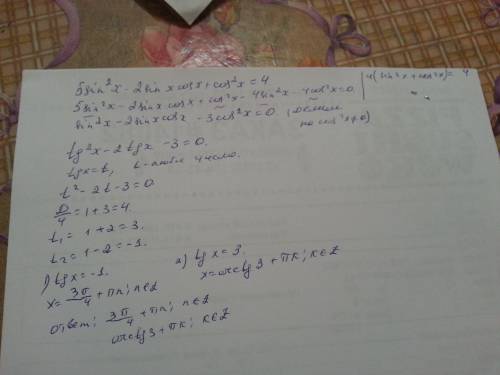 5sin²x - 2sin x cosx + cos²x = 4
5sin²x - 2sinx cosx + cos²x - 4sin²x - 4cos²x = 0
4(sin²x + cos²x) = 4
sin²x - 2sinx cosx - 3cos²x = 0 (делим
на cos²x ≠ 0)
tg²x - 2tgx - 3 = 0.
tgx = t, t - любое число.
t² - 2t - 3 = 0
D/4 = 1 + 3 = 4.
t₁ = 1 + 2 = 3.
t₂ = 1 - 2 = -1.
1) tgx = -1.
x = 3π/4 + πn; n∈Z
2) tgx = 3.
x = arctg3 + πk; k∈Z
Ответ: 3π/4 + πn; n∈Z
arctg3 + πk; k∈Z